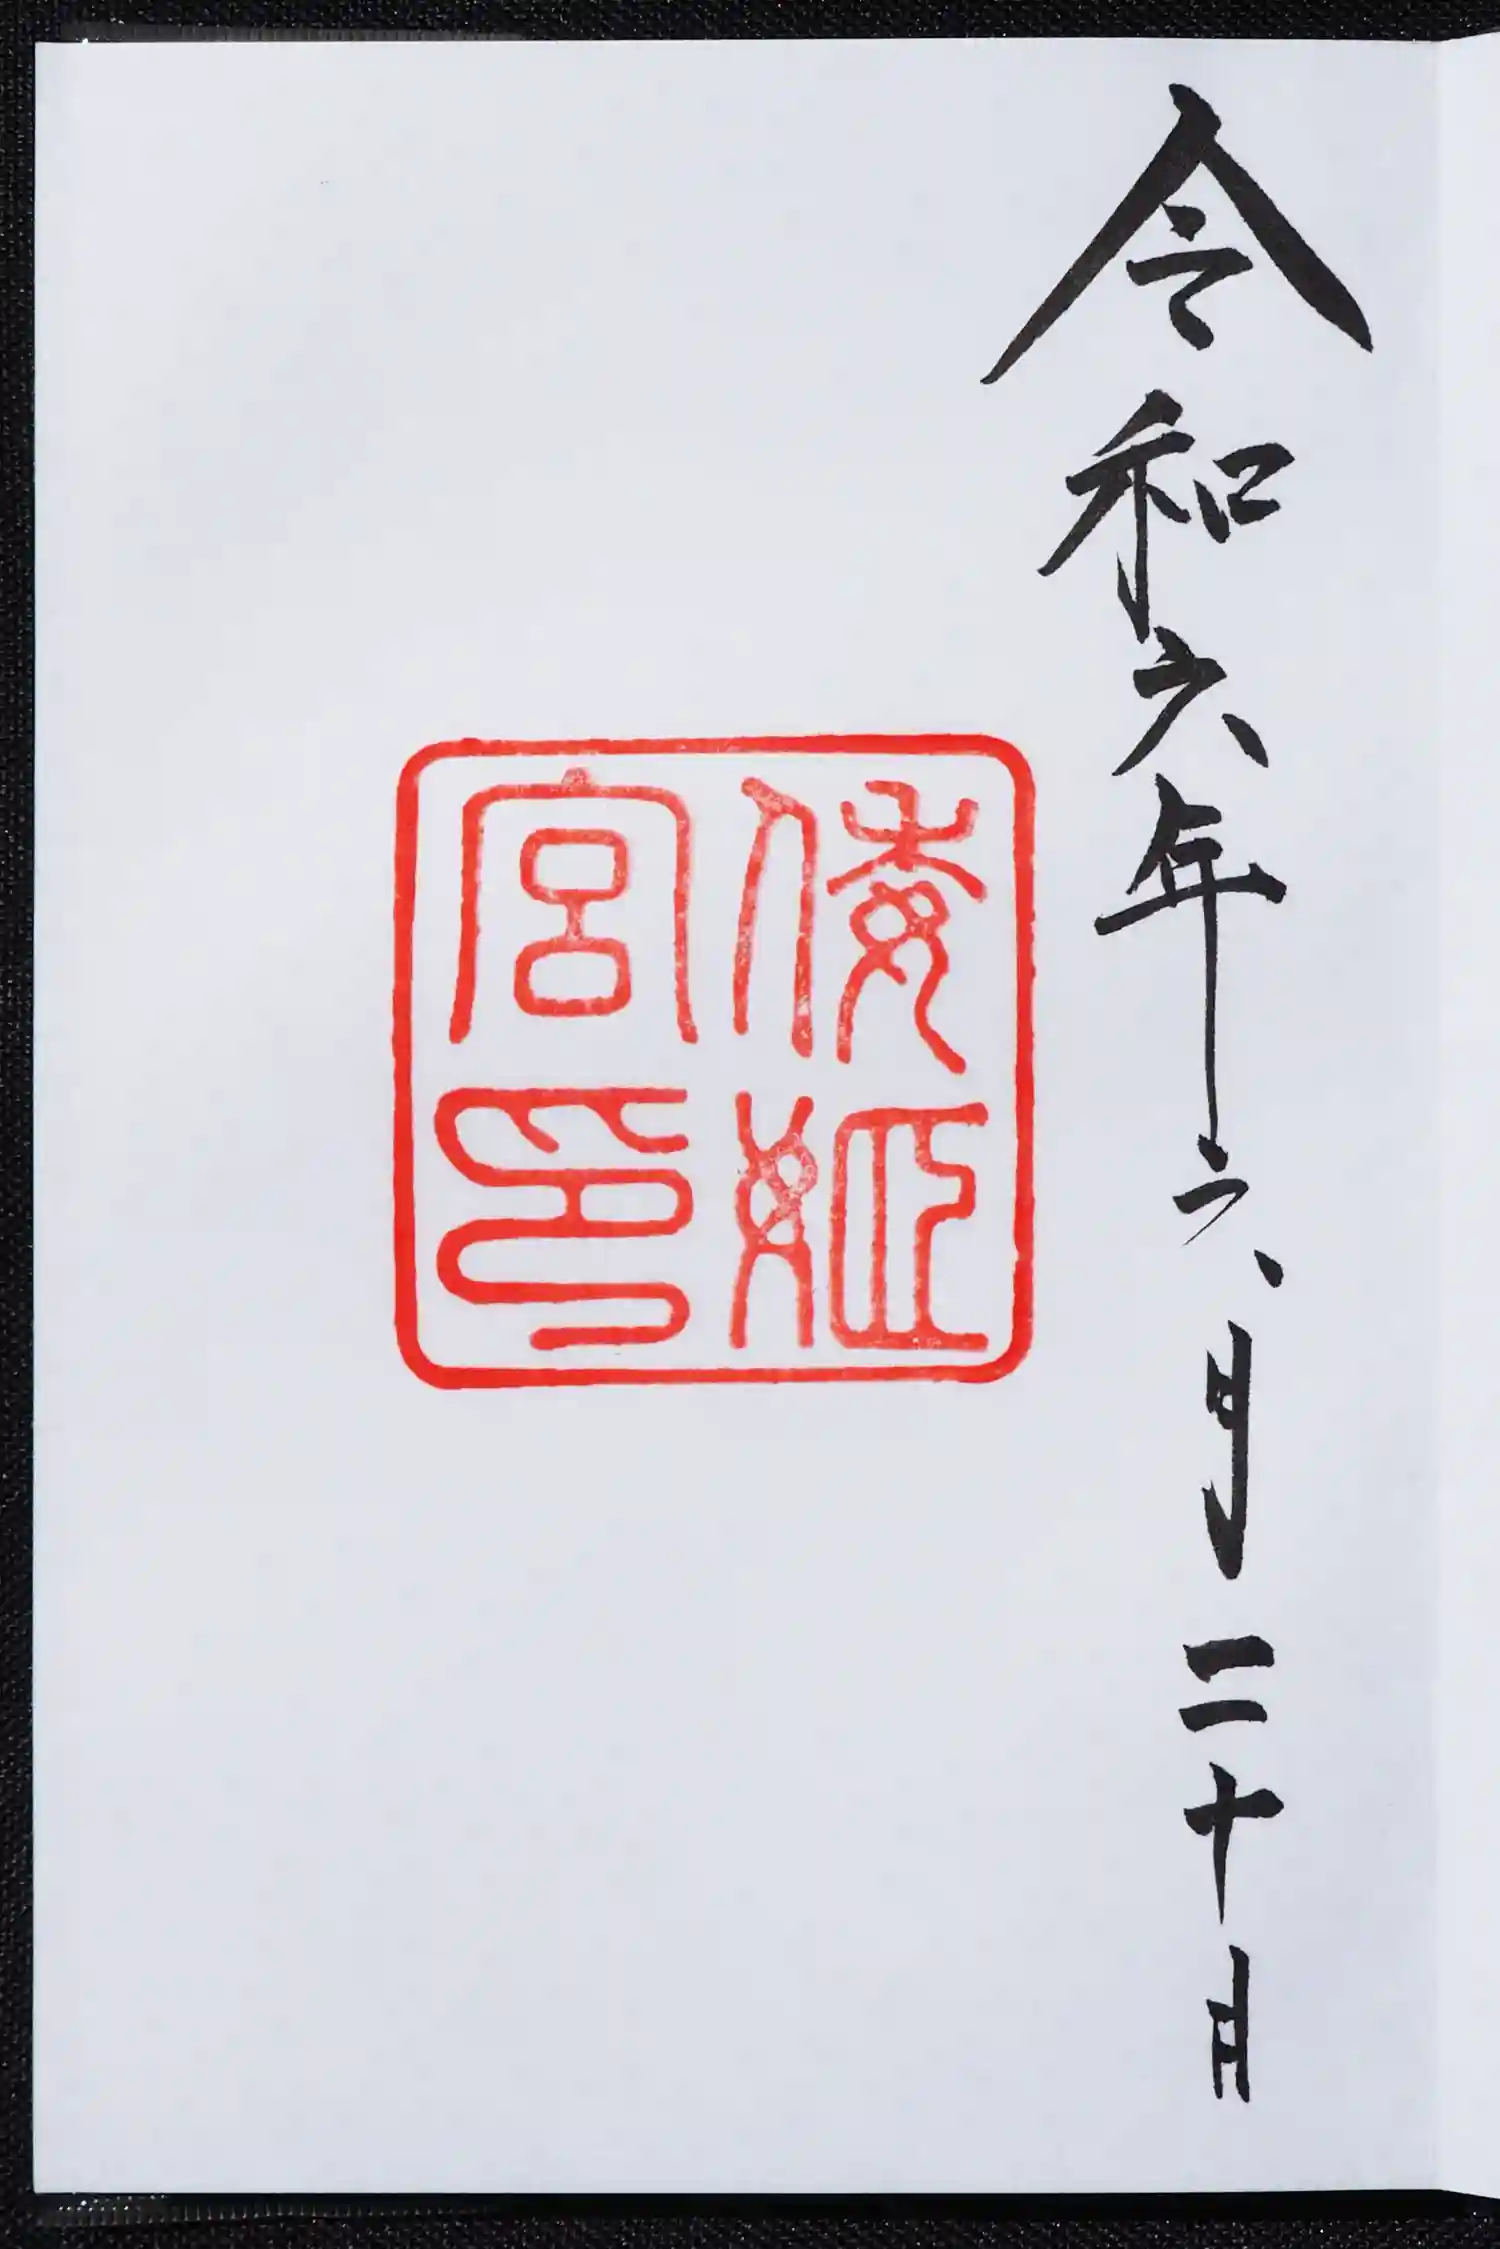 令和六年六月二十日
倭姫
宮印